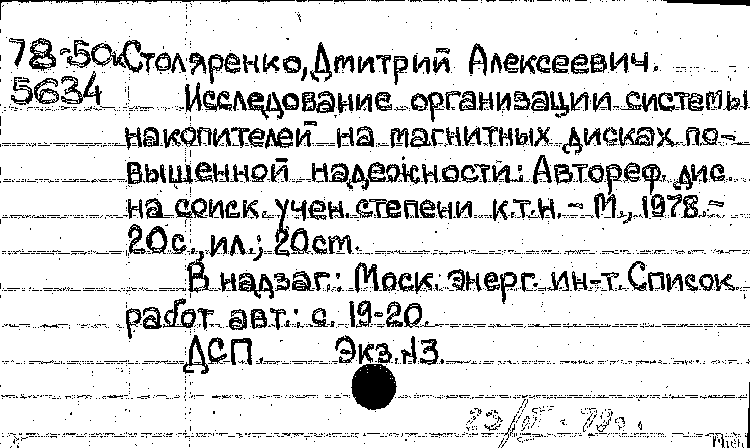 78-50к Столяренко, Дмитрий Алексеевич.
5634 Исследование организации системы
накопителей на магнитных дисках по-
вышенной надежности: Автореф. дис.
на соиск. учен. степени к.т.н. – М., 1978.–
20с., ил.; 20ст.
В надзаг.: Моск. энерг. ин-т. Список
работ авт.: с. 19-20.
ДСП. Экз.№3.